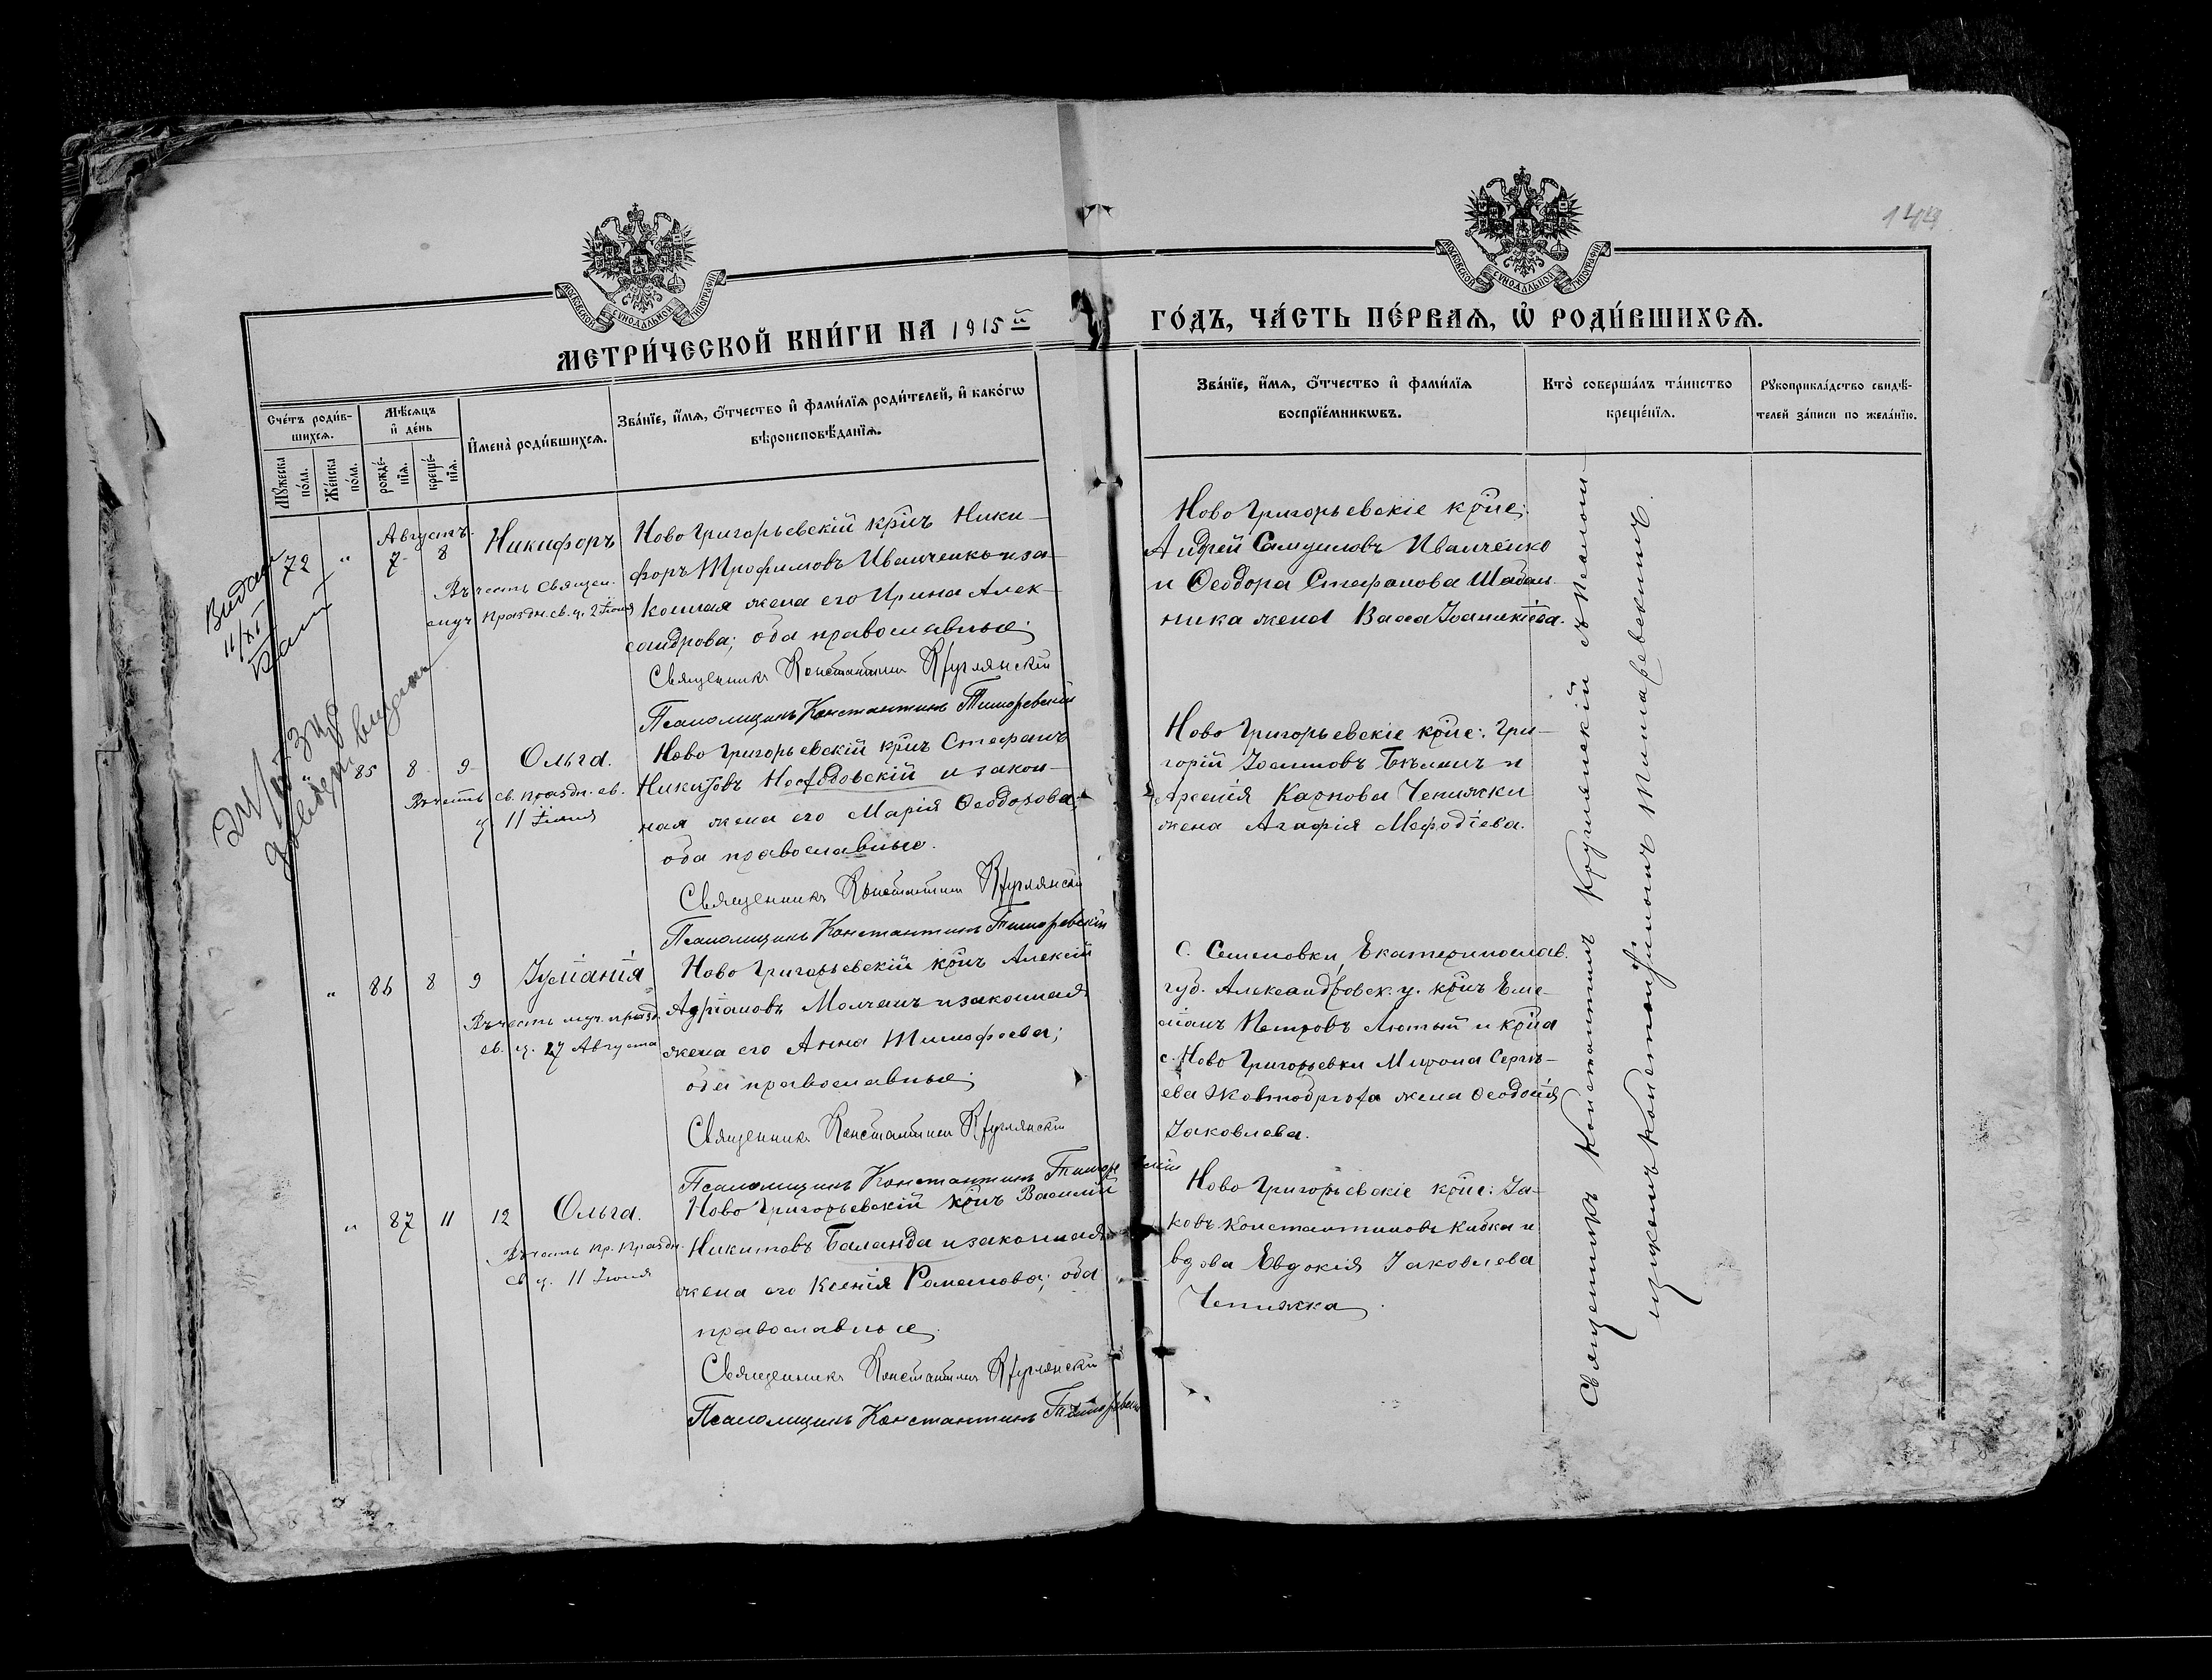 149
МОСКОВСКОЙ СѴНОДАЛЬНОЙ ТИПОГРАФІИ
МОСКОВСКОЙ СѴНОДАЛЬНОЙ ТИПОГРАФІИ
МЕТРИ́ЧЕСКОЙ КНИ́ГИ НА 1915й
ГО́ДЪ, ЧА́СТЬ ПЕ́РВАѦ, Ѡ҆ РОДИ́ВШИХСѦ.
Сче́тъ роди́в-
шихсѧ.
Мꙋ́жеска
по́ла.
Же́нска
по́ла.
Мѣ́сѧцъ
и҆ де́нь
рожде́-
нїѧ.
креще́-
нїѧ.
И҆мена̀ роди́вшихсѧ.
Зва́нїе, и҆́мѧ, ѻ҆́тчество и҆ фами́лїѧ роди́телей, и҆ како́гѡ
вѣроисповѣ́данїѧ.
Зва́нїе, и҆́мѧ, ѻ҆́тчество и҆ фами́лїѧ
воспрїе́мникѡвъ.
Кто̀ соверша́лъ та́инство
креще́нїѧ.
Рꙋкоприкла́дство свидѣ́-
телей за́писи по жела́нїю.
Августъ.
72 " 7 8 Никифоръ
Въ честь священ.
муч. праздн. св. ц. 2 Іюня
Ново Григорьевскій кр҃нъ Ники-
форъ Трофимовъ Иванченко и за-
конная жена его Ирина Алек-
сандрова; оба православные;
Священникъ Константинъ Круглянскій
Псаломщикъ Константинъ Тиморевскій
Ново Григорьевскіе кр҃не;
Андрей Самуиловъ Иванченко
и Ѳеодора Стефанова Шабель-
ника жена Васса Іоанникіева.
Видан
11/XI
" 85 8 9 Ольга.
Въ честь св. праздн. св.
ц. 11 Іюля
Ново Григорьевскій кр҃нъ Стефанъ
Никитовъ Носадовскій и закон-
ная жена его Марія Ѳеодорова;
оба православные.
Священникъ Константинъ Круглянскій
Псаломщикъ Константинъ Тиморевскій
Ново Григорьевскіе кр҃не: Гри-
горій Іоанновъ Бѣланъ и
Арсенія Карпова Чепижки
жена Агафія Мефодіева.
" 86 8 9 Іуліанія
Въ честь муч. празд.
св. ц. 17 Августа
Ново Григорьевскій кр҃нъ Алексій
Адріановъ Молчанъ и законная
жена его Анна Тимофеева;
оба православные;
Священникъ Константинъ Круглянскій
Псаломщикъ Константинъ Тиморевскій
С. Семеновки, Екатеринослав.
губ. Александровск. у. кр҃нъ Еме-
ліанъ Петровъ Лютый и кр҃на
с. Ново Григорьевки Мирона Сергѣ-
ева Жовтобрюха жена Ѳеодосія
Іаковлева.
" 87 11 12 Ольга.
Въ честь пр. праздн.
св. ц. 11 Іюля
Ново Григорьевскій кр҃нъ Василій
Никитовъ Баланда и законная
жена его Ксенія Романова; оба
православные;
Священникъ Константинъ Круглянскій
Псаломщикъ Константинъ Тиморевскій
Ново Григорьевскіе кр҃не: Іа-
ковъ Константиновъ Кибка и
вдова Евдокія Іаковлева
Чепижка.
Священникъ Константинъ Круглянскій и Псалом-
щикомъ Константиномъ Тиморевскимъ.